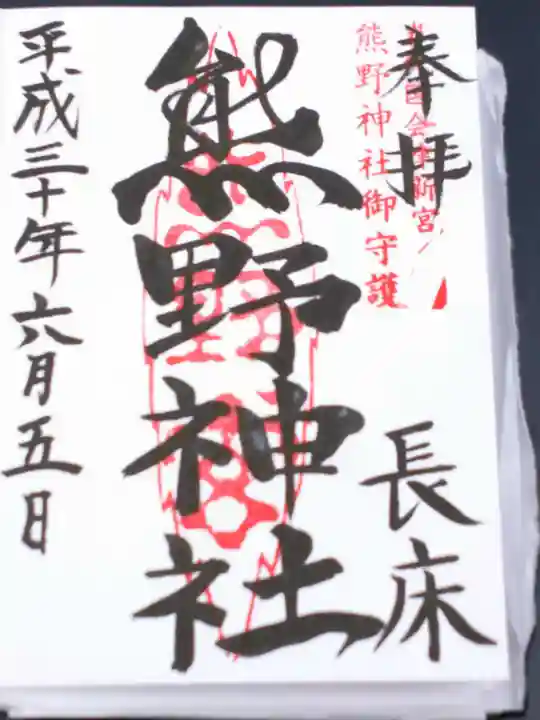 奉拝
熊野神社御守護
長床
熊野神社
平成三十年六月五日